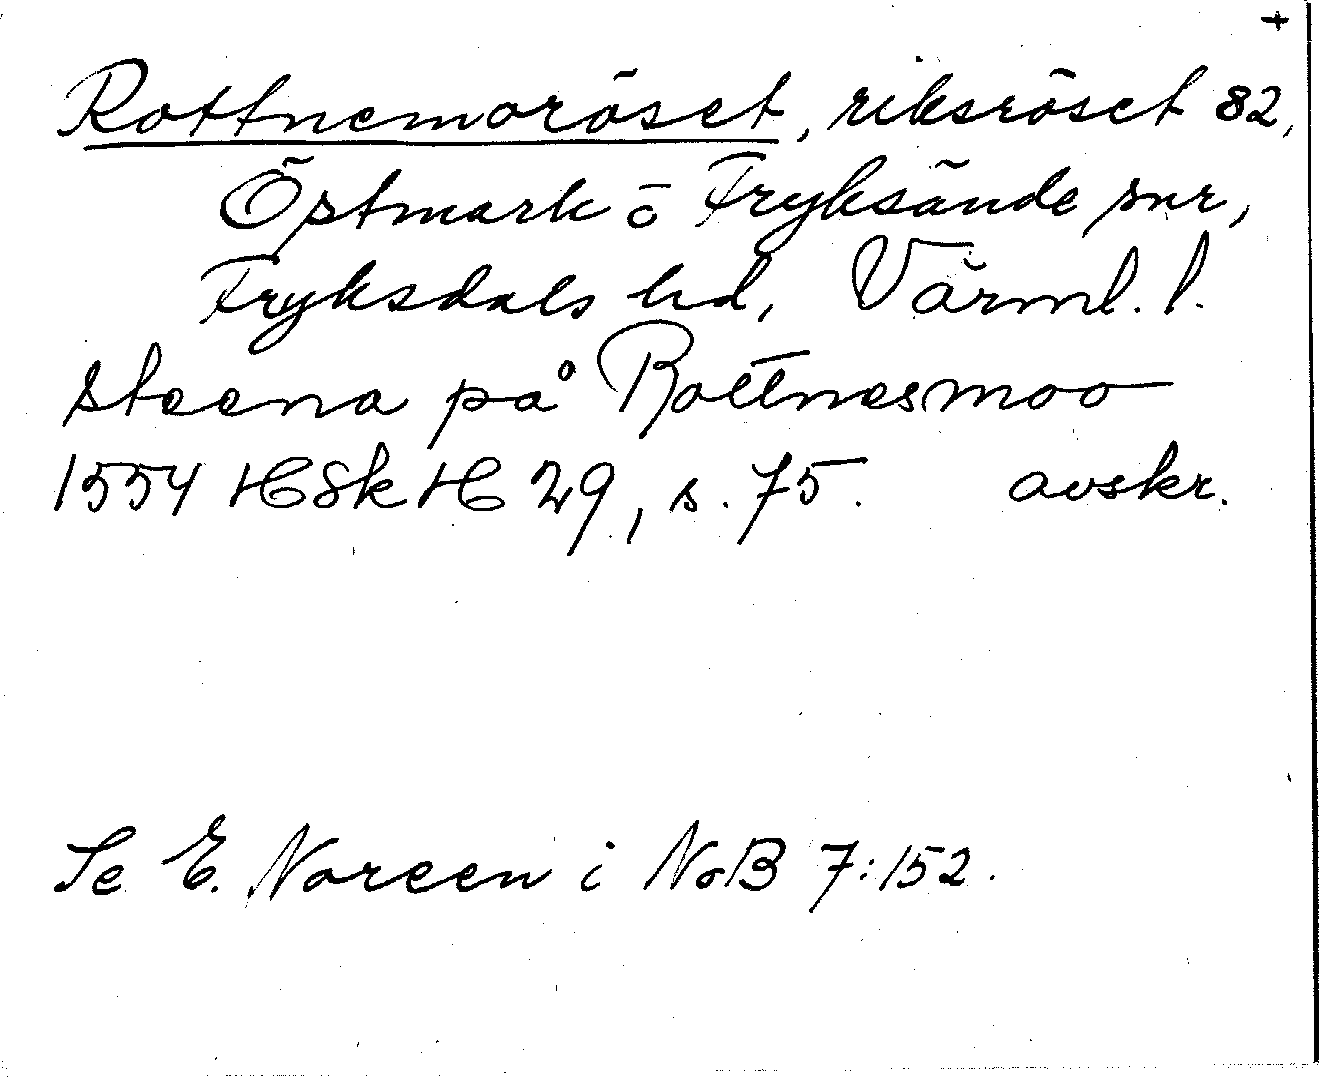 +
Rottnemoröset, riksröset 82,
Östmark o Fryksände snr,
Fryksdals hd, Värml. l.
steena på Rottnesmoo
1554 HSk H 29, s. 75. avskr.
Se E. Noreen i NoB 7:152.